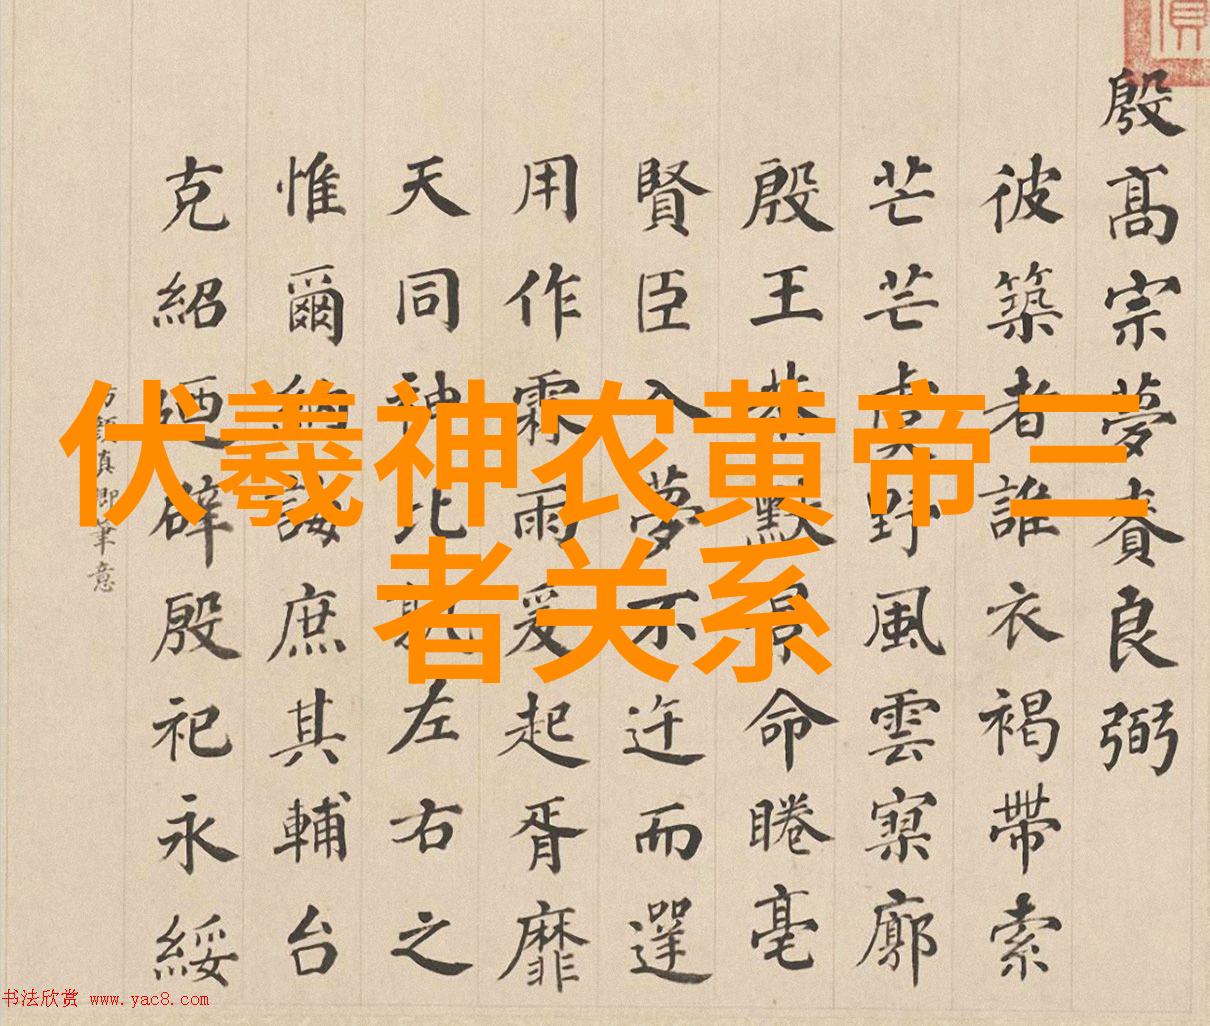 伏羲神农黄帝三
者关系
殷髙宗夢賚良弼
彼築者誰衣褐帶索
芒芒虞野風雲寥廓
殷王恭默景命睠亳
賢臣入夢不迕而遻
用作霖雨爰起胥靡
天同神比左右之
惟爾納誨庶其輔台
克紹廼辟殷祀永綏
仿顏真卿筆意
书法欣赏 www.yac8.com